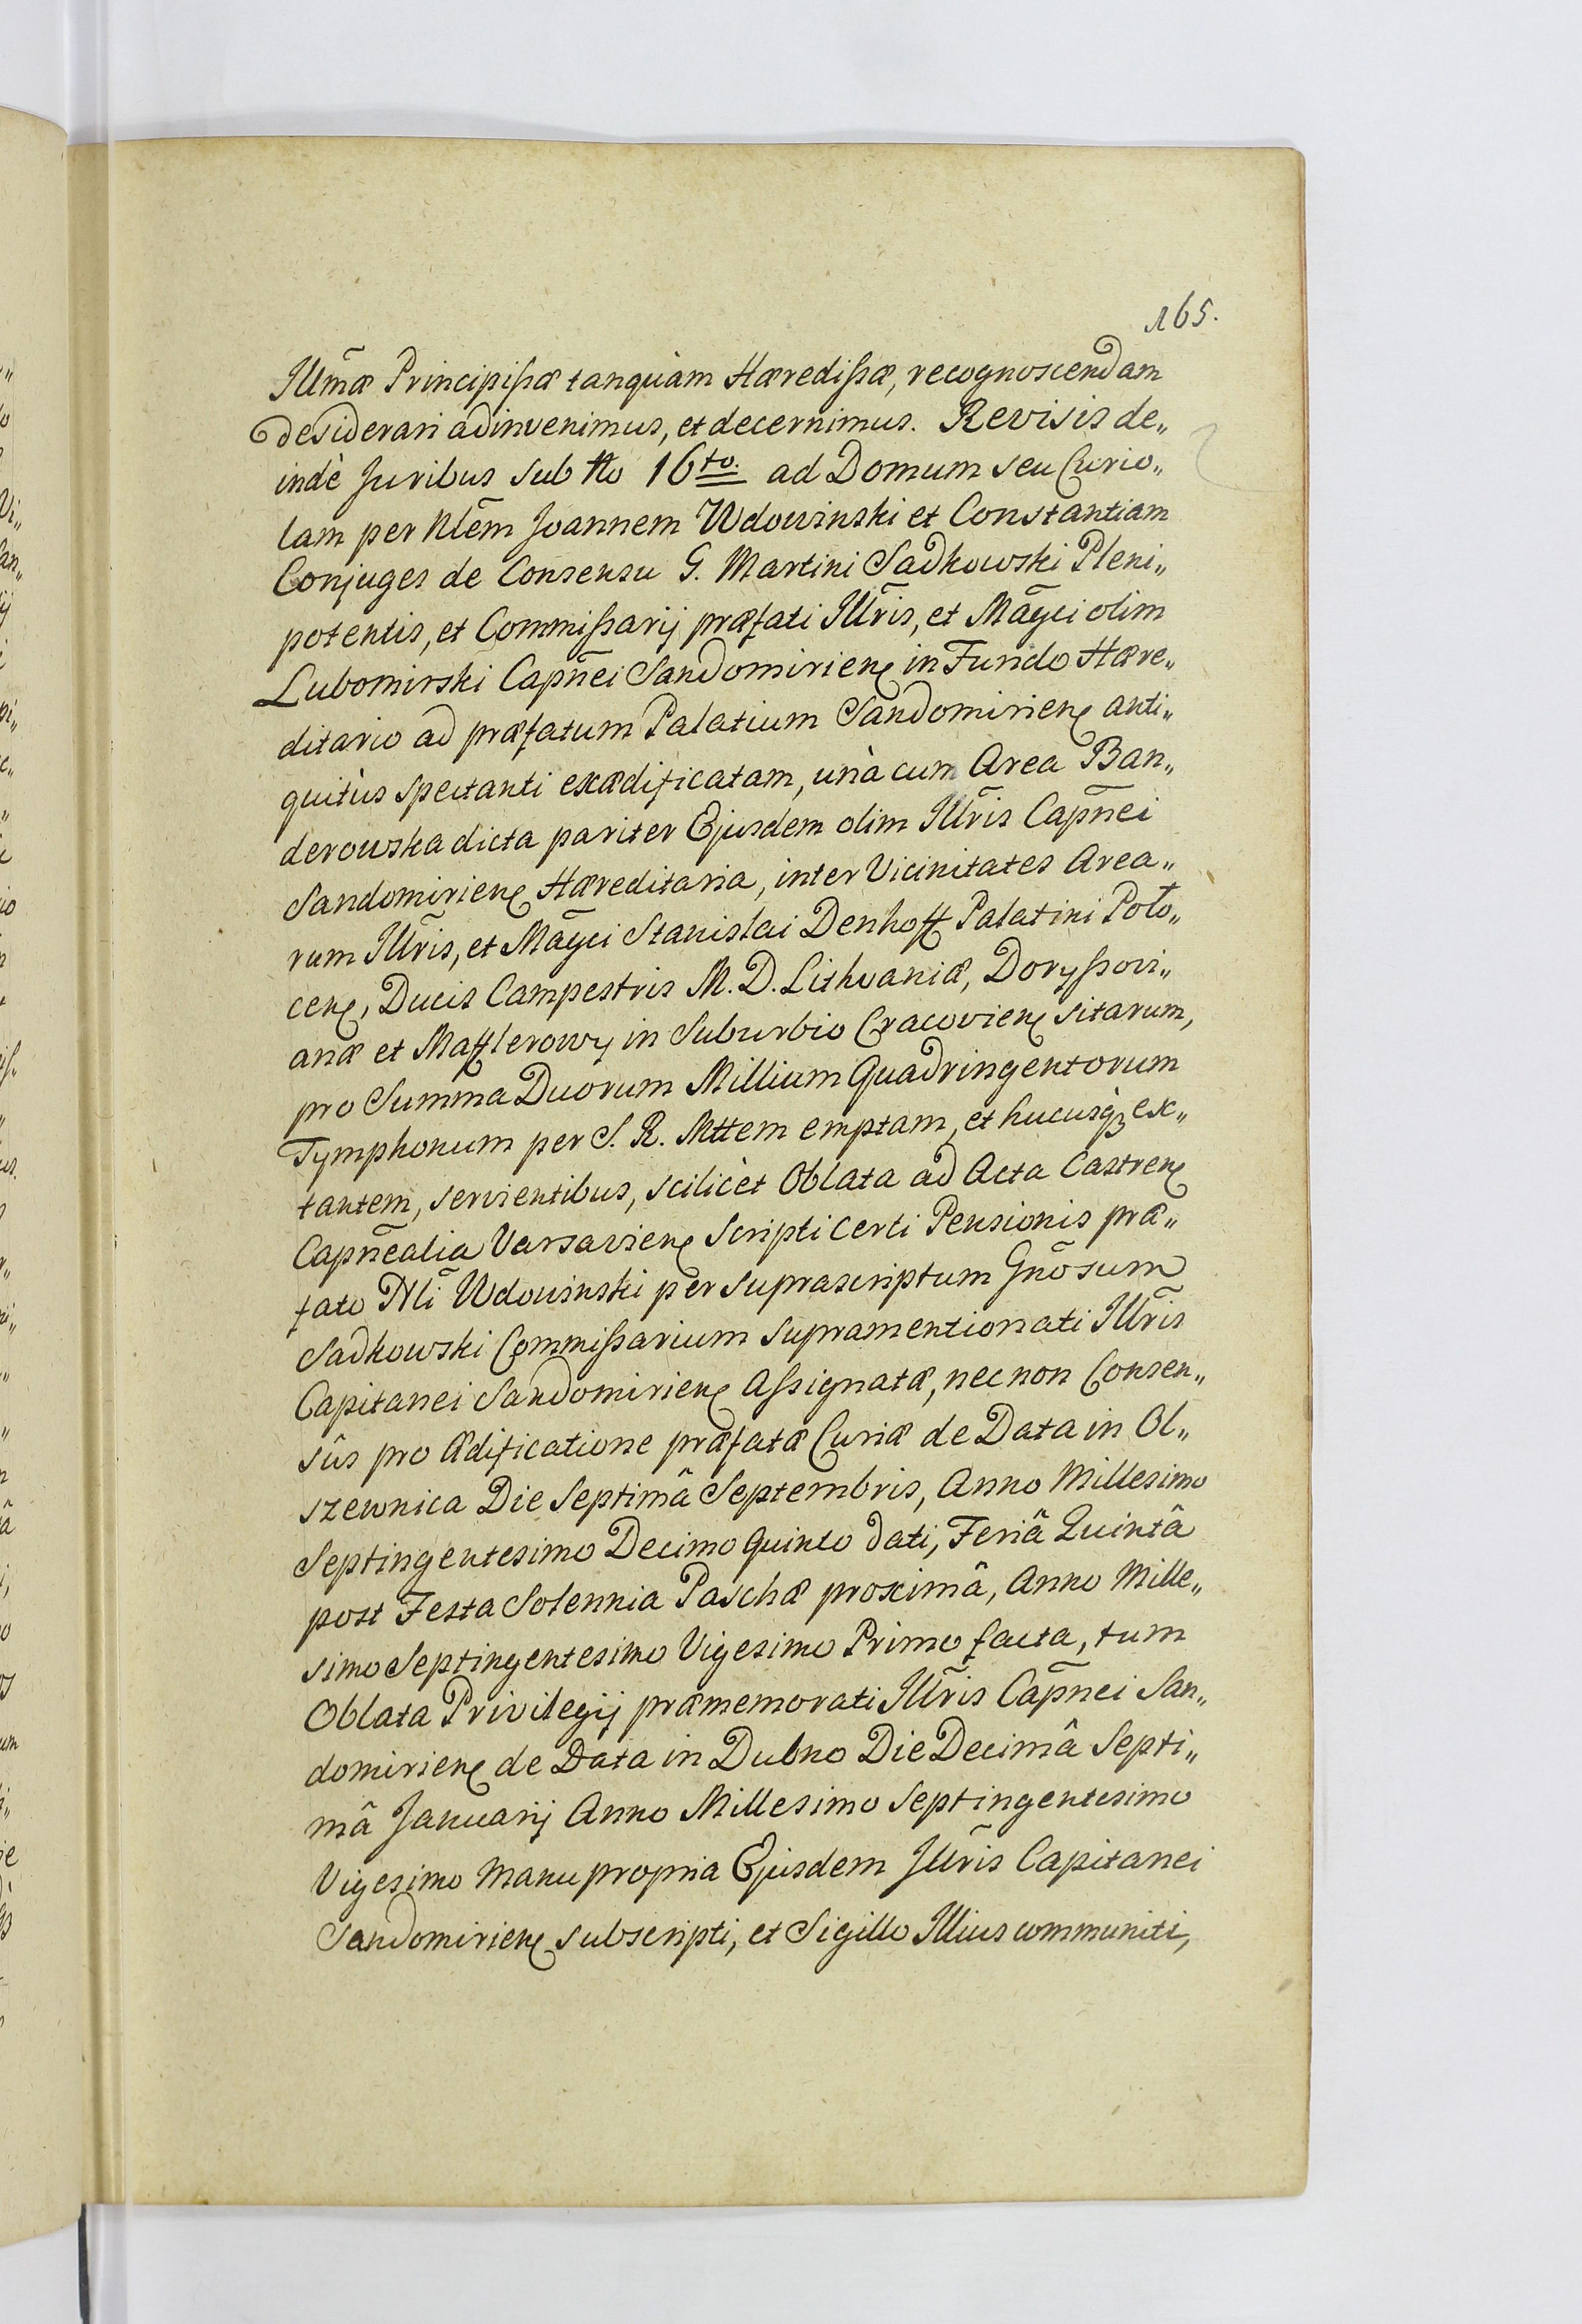 165.
Illmæ Principissæ tanquàm Hæredissæ, recognoscendam
desiderari adinvenimus, et decernimus. Revisis de„
indè Juribus sub No 16to. ad Domum seu Curio„
lam per Nlem Joannem Wdowinski et Constantiam
Conjuges de Consensu G. Martini Sadkowski Pleni„
potentis, et Commissarij præfati Illris, et Magci olim
Lubomirski Capnei Sandomirien in Fundo Hære„
ditario ad præfatum Palatium Sandomirien anti„
quitùs spectanti exædificatam, unà cum Area Ban„
derowska dicta pariter Ejusdem olim Illris Capnei
Sandomirien Hæreditaria, inter Vicinitates Area„
rum Illris, et Magci Stanislai Denhoff Palatini Polo„
cen, Ducis Campestris M. D. Lithvaniæ, Doryssovi„
anæ et Mafflerowy in Suburbio Cracovien sitarum,
pro Summa Duorum Millium Quadringentorum
Tymphonum per S. R. Mttem emptam, et hucusq3 ex„
tantem, servientibus, scilicèt Oblata ad Acta Castren
Capnealia Varsavien Scripti certi Pensionis præ„
fato Nli Wdowinski per suprascriptum Gnosum
Sadkowski Commissarium supramentionati Illris
Capitanei Sandomirien Assignatæ, nec non Consen„
sûs pro Ædificatione præfatæ Curiæ de Data in Ol„
szewnica Die Septimâ Septembris, Anno Millesimo
Septingentesimo Decimo Quinto dati, Feriâ Quintâ
post Festa Solennia Paschæ proximâ, Anno Mille„
simo Septingentesimo Vigesimo Primo facta, tum
Oblata Privilegij præmemorati Illris Capnei San„
domirien de Data in Dubno Die Decimâ Septi„
mâ Januarij Anno Millesimo Septingentesimo
Vigesimo Manu propria Ejusdem Illris Capitanei
Sandomirien subscripti, et Sigillo Illius communiti,